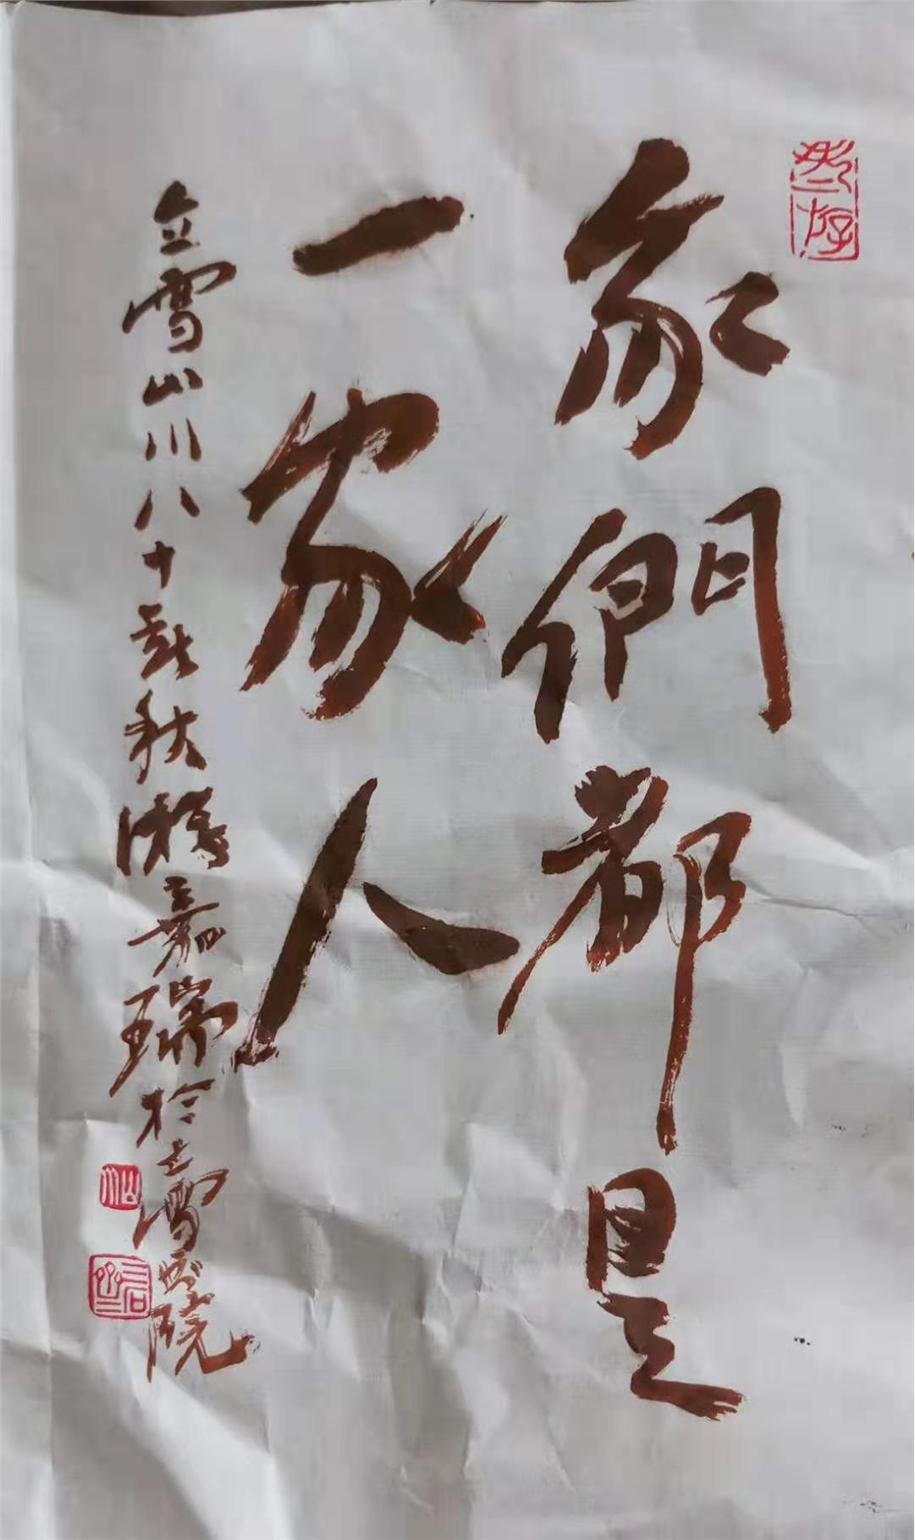 我們都是
一家人
立雪山川八十歲秋嘉瑞於立雪書院